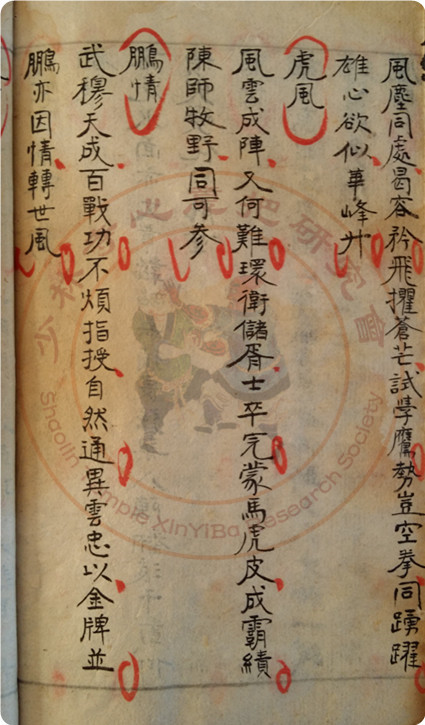 風塵同處曷容矜飛擢蒼芒試學鷹勢豈空拳同踴躍
雄心欲似華峰升
虎風
風雲成陣又何難環衛儲胥士卒完蒙馬虎皮成霸績
陳師牧野同可參
鵬情
武穆天成百戰功不煩指授自然通異雲忠以金牌並
鵬亦因情轉世風
少林寺心意把研究會
Shaolin Temple XinYiBa Research Society